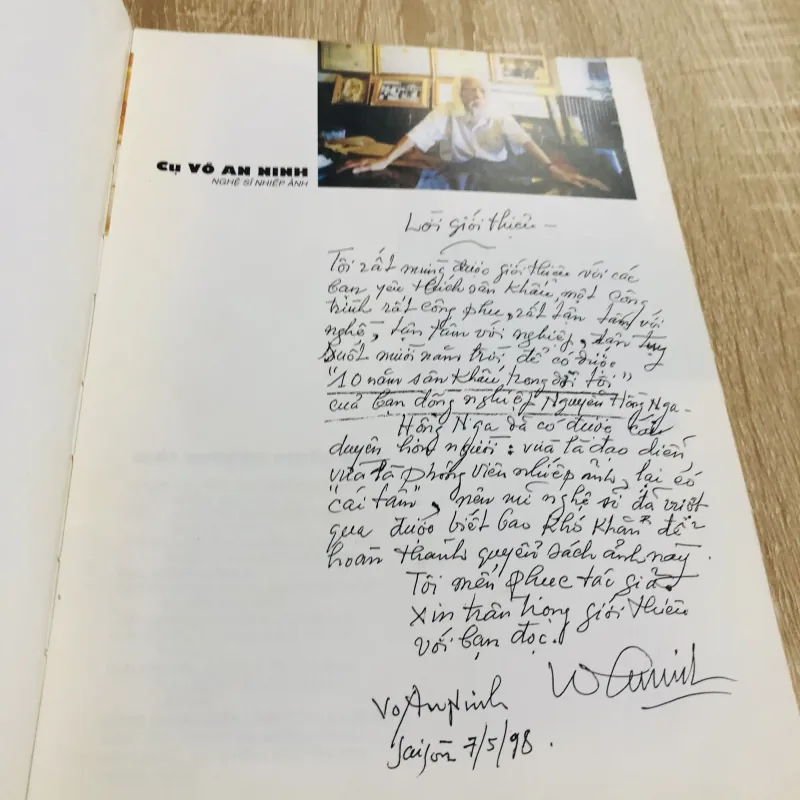 Cụ VÕ AN NINH
NGHỆ SĨ NHIẾP ẢNH
Lời giới thiệu -
Tôi rất mừng được giới thiệu với các
bạn yêu thích sân khấu, một công
trình rất công phu, rất tận tâm với
nghề, tận tâm với nghiệp, tận tụy
suốt mười năm trời để có được
"10 năm sân khấu trong đời tôi"
của bạn đồng nghiệp Nguyễn Hồng Nga -
Hồng Nga đã có được cái
duyên hơn người: vừa là đạo diễn,
vừa là phóng viên nhiếp ảnh, lại có
"cái tâm", nên nữ nghệ sĩ đã vượt
qua được biết bao khó khăn để
hoàn thành quyển sách ảnh này.
Tôi mến phục tác giả
Xin trân trọng giới thiệu
với bạn đọc.
Võ An Ninh
Saigon 7/5/98.